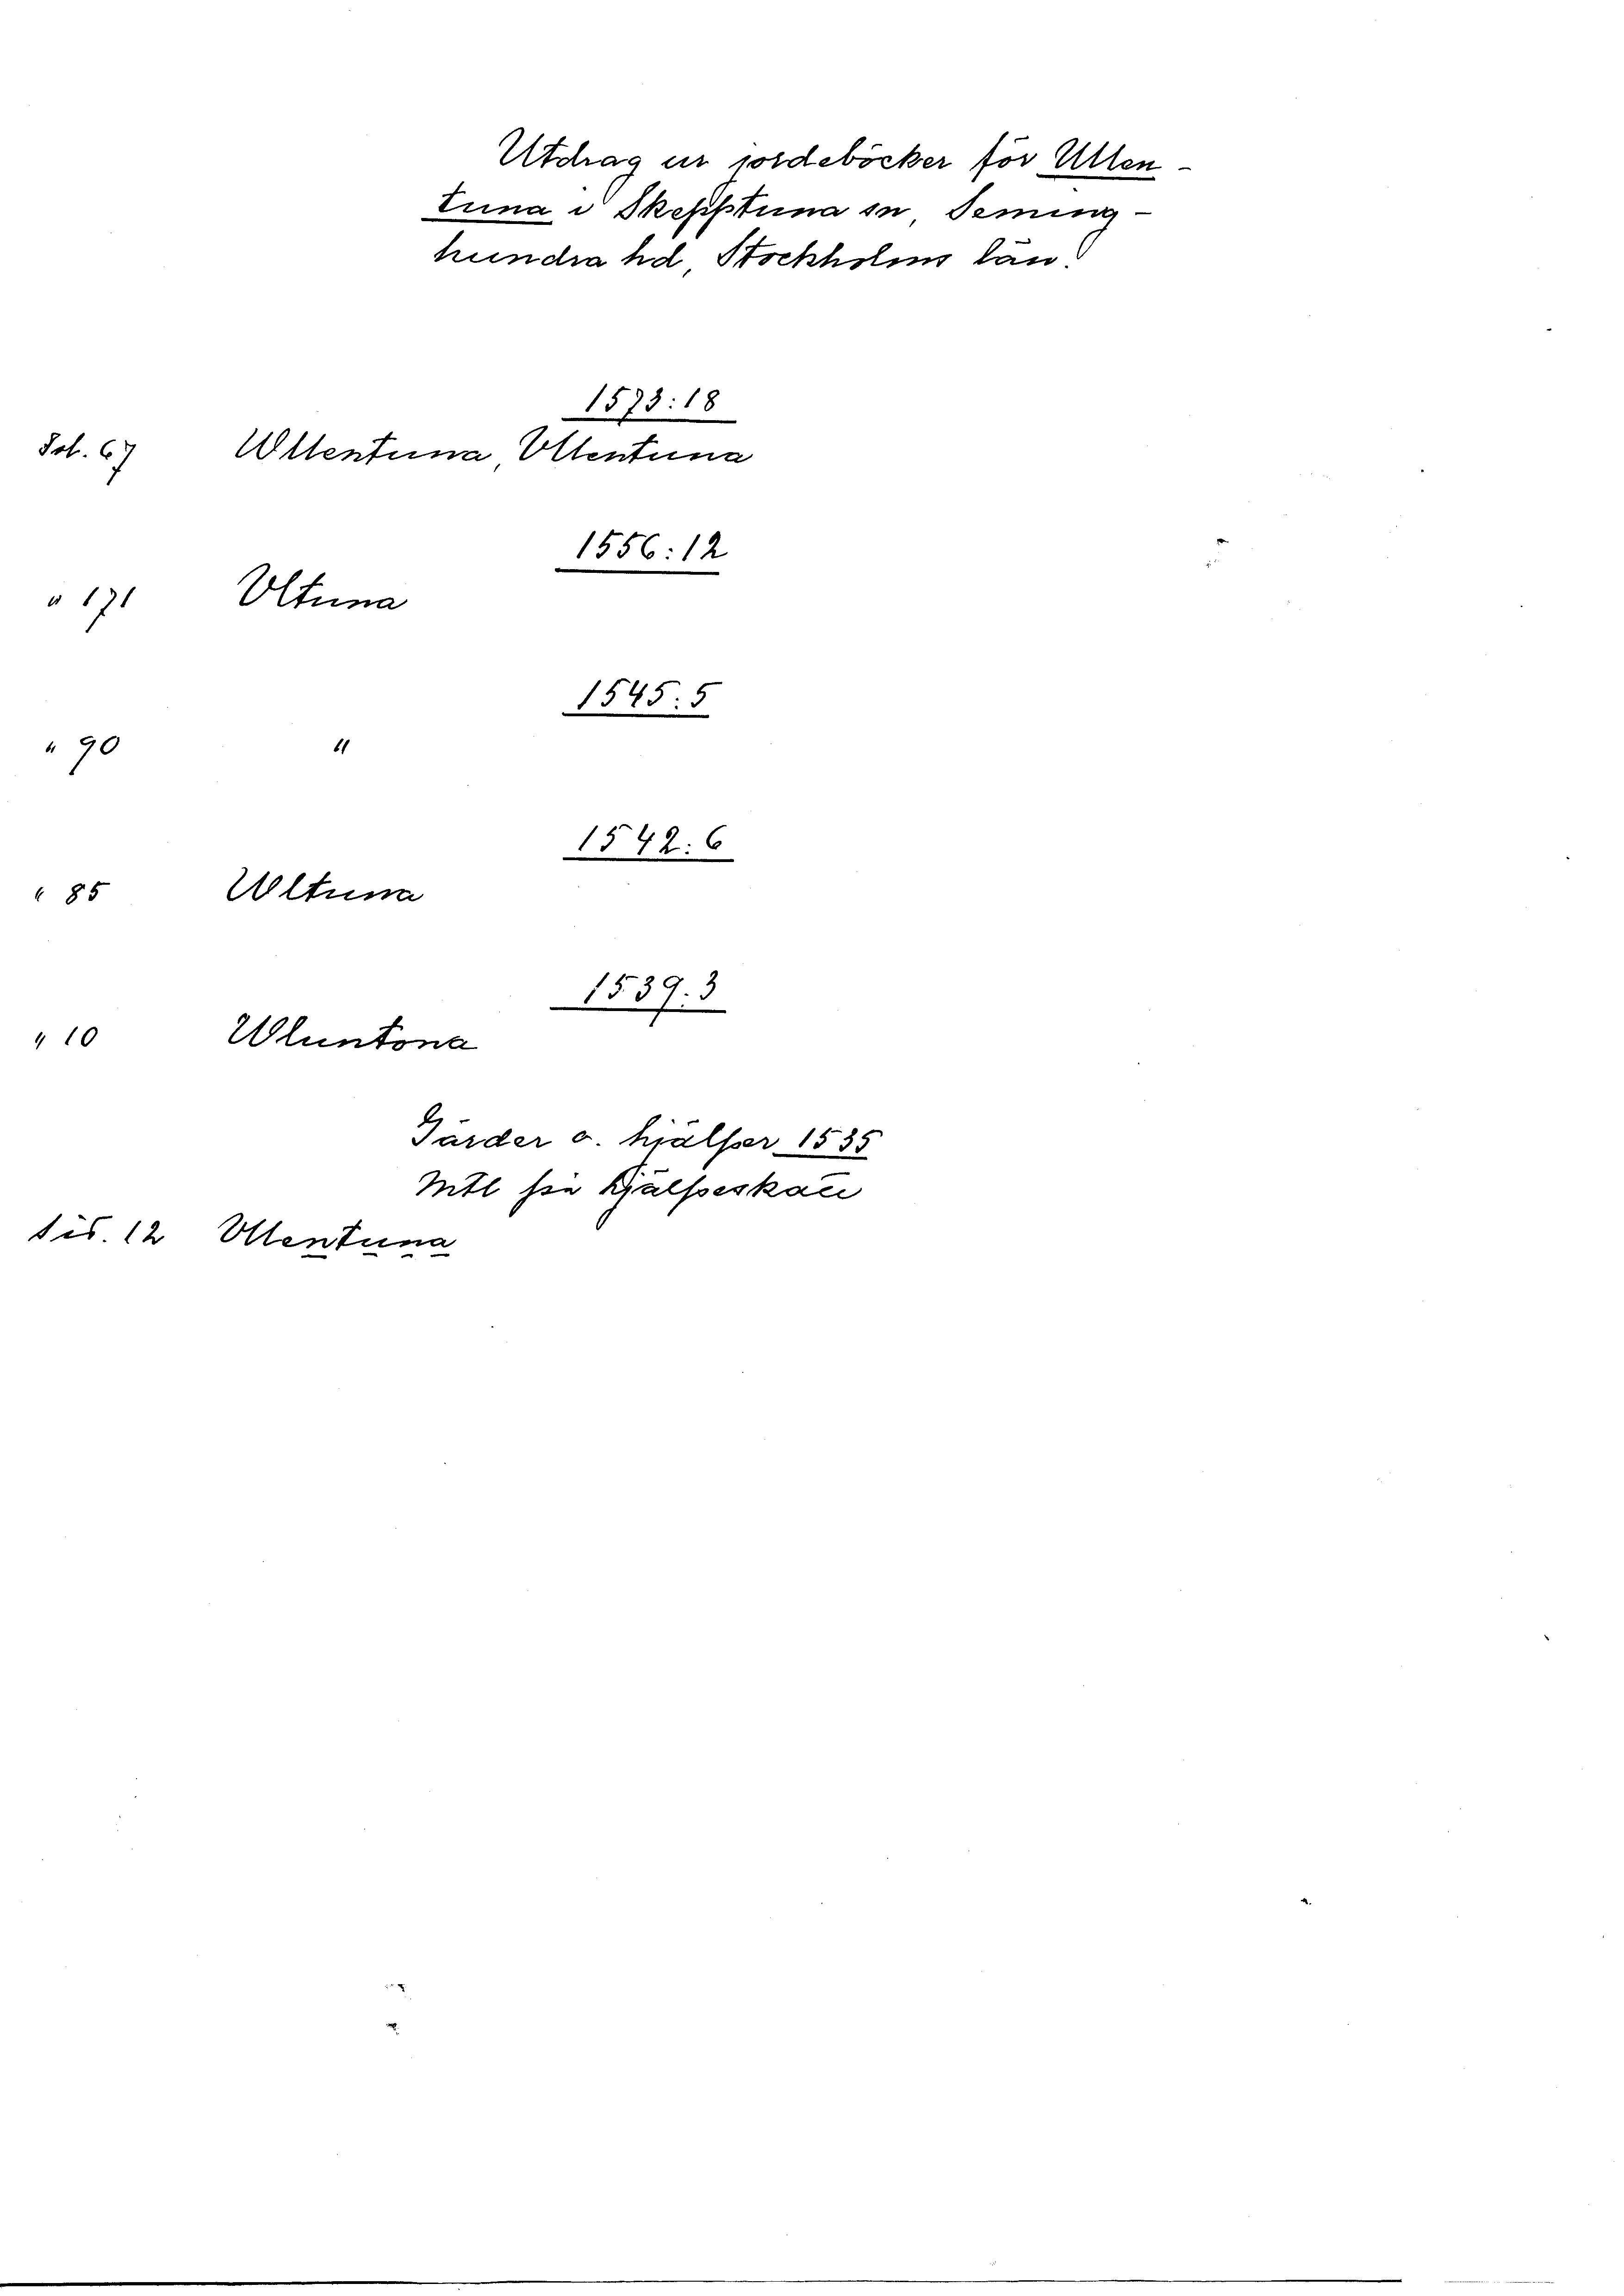 Utdrag ur jordeböcker för Ullen-
tuna i Skepptuna sn, Seming-
hundra hd, Stockholms län.
1573:18
Fol. 67 Wllentuna, Vllentuna
1556:12
" 171 Vltuna
1545:5
" 90 "
1542:6
" 85 Wltuna
1539:3
" 10 Wluntona
Gärder o. hjälper 1535
Mtl på hjälpeskatt
sid. 12 Vllentuna